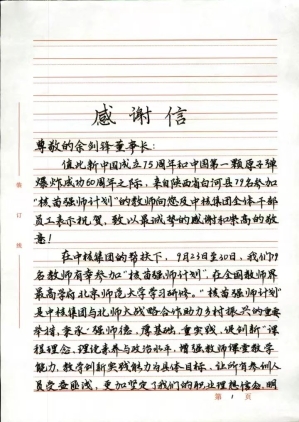 感谢信
尊敬的余剑锋董事长：
值此新中国成立75周年和中国第一颗原子弹
爆炸成功60周年之际，来自陕西省白河县79名参加
“核苗强师计划”的教师向您及中核集团全体干部
员工表示祝贺，致以最诚挚的感谢和崇高的敬
意！
在中核集团的帮扶下，9月23日至30日，我们79
名教师有幸参加“核苗强师计划”，在全国教师界
最高学府北京师范大学学习研修。“核苗强师计划”
是中核集团与北师大战略合作助力乡村振兴的重要
举措，秉承“强师德，厚基础，重实践，促创新”课
程理念，理论素养与政治水平，增强教师课堂教学
能力，教育创新实践能力为具体目标，让所有参训人
员受益匪浅，更加坚定了我们的职业理想信念，明
装订线
第1页